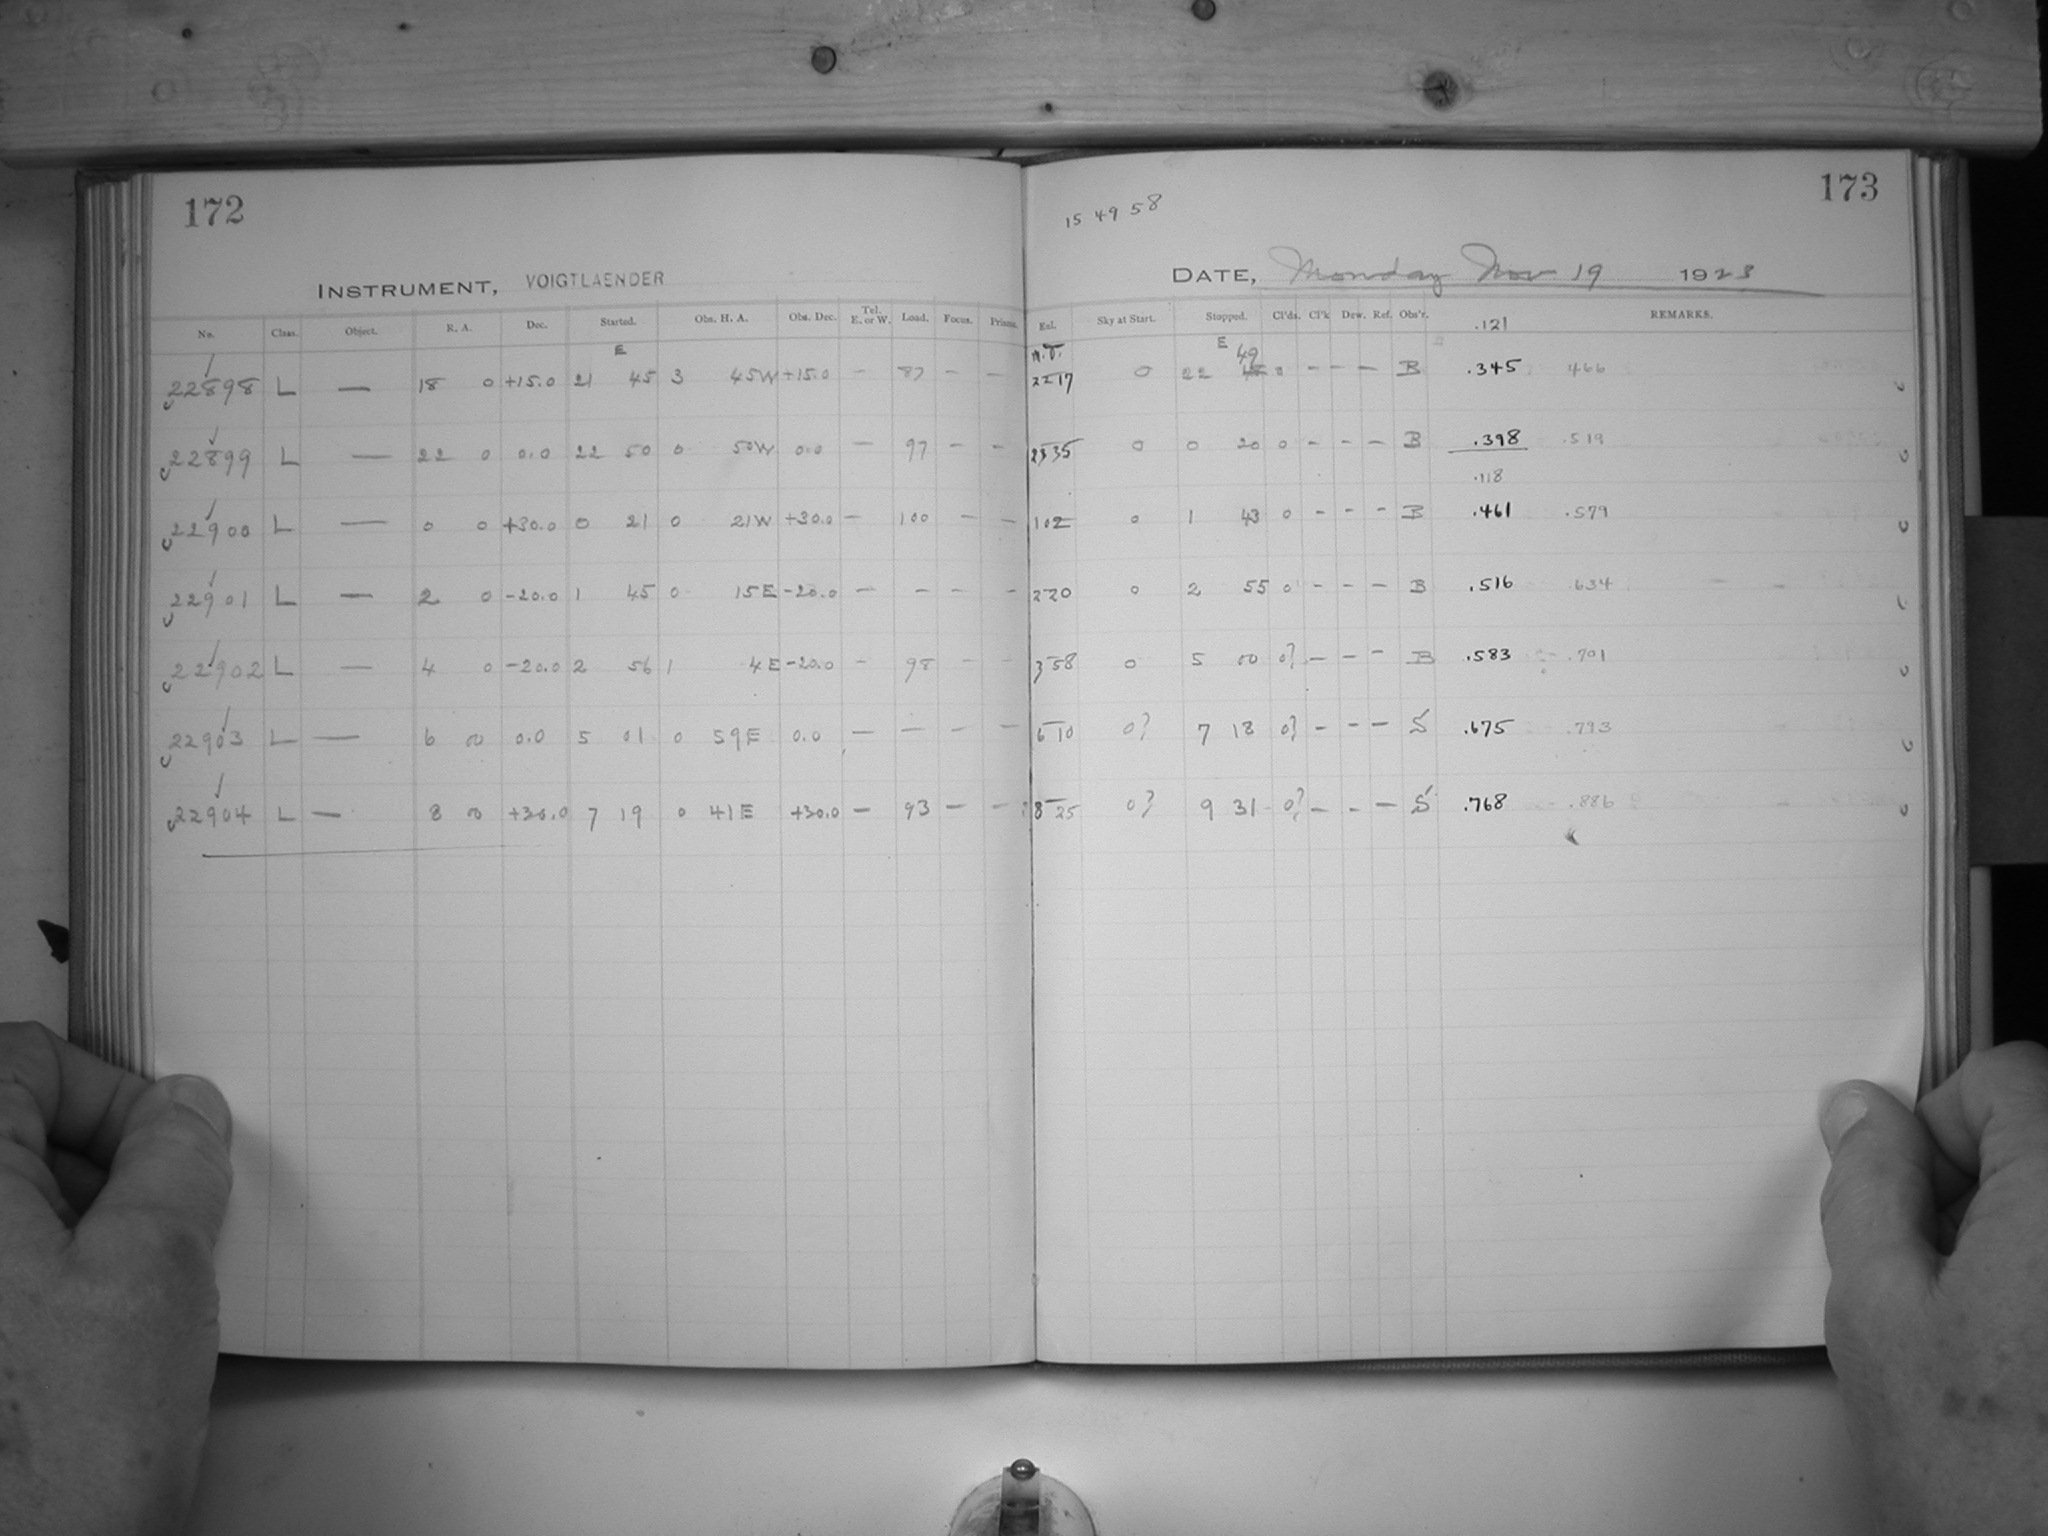 172
173
15 49 58
INSTRUMENT, VOIGTLAENDER
DATE, Monday Nov 19 1923
No. Class. Object. R. A. Dec. Started. Obs. H. A. Obs. Dec. Tel. E. or W. Load. Focus. Prisms. Exl. Sky at Start. Stopped. Cl'ds. Cl'k Dew. Ref. Obs'r. REMARKS.
.121
E M.T. E 49
22898 L — 18 0 +15.0 21 45 3 45W +15.0 — 87 — — 22 17 0 22 0 — — — B .345 466
22899 L — 22 0 0.0 22 50 0 50W 0.0 — 97 — — 23 35 0 0 20 0 — — — B .398 .519
.118
22900 L — 0 0 +30.0 0 21 0 21W +30.0 — 100 — — 1 02 0 1 43 0 — — — B .461 .579
22901 L — 2 0 -20.0 1 45 0 15E -20.0 — — — — 2 20 0 2 55 0 — — — B .516 634
22902 L — 4 0 -20.0 2 56 1 4E -20.0 — 98 — — 3 58 0 5 00 0? — — — B .583 .701
22903 L — 6 00 0.0 5 01 0 59E 0.0 — — — — 6 10 0? 7 18 0? — — — S .675 .793
22904 L — 8 00 +30.0 7 19 0 41E +30.0 — 93 — — 8 25 0? 9 31 0? — — — S .768 .886